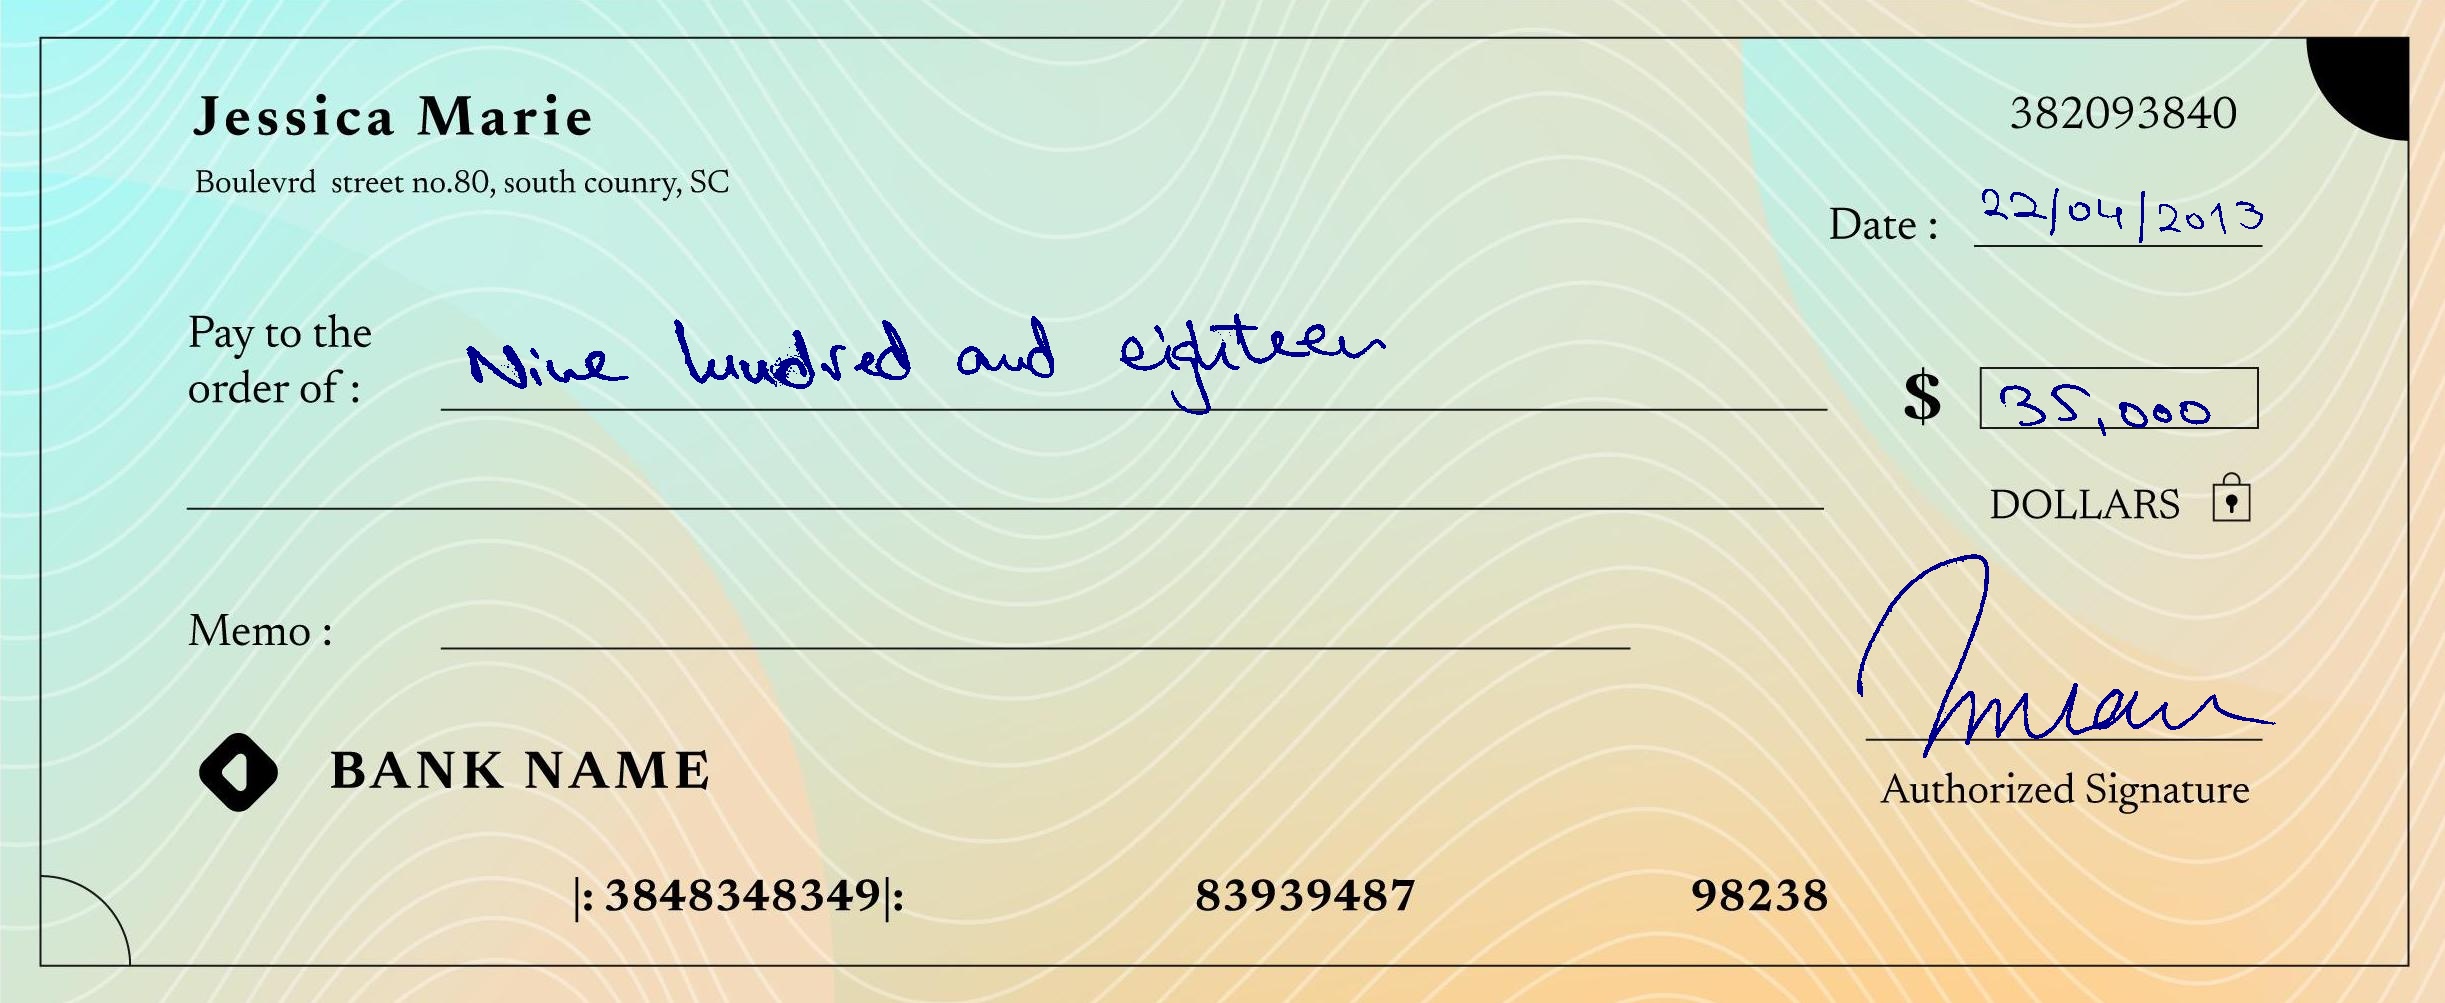 Jessica Marie
382093840
Boulevrd street no.80, south counry, SC
Date : 22/04/2013
Pay to the
order of : Nine hundred and eighteen
$ 35,000
DOLLARS
Memo :
BANK NAME
Authorized Signature
|: 3848348349|: 83939487 98238